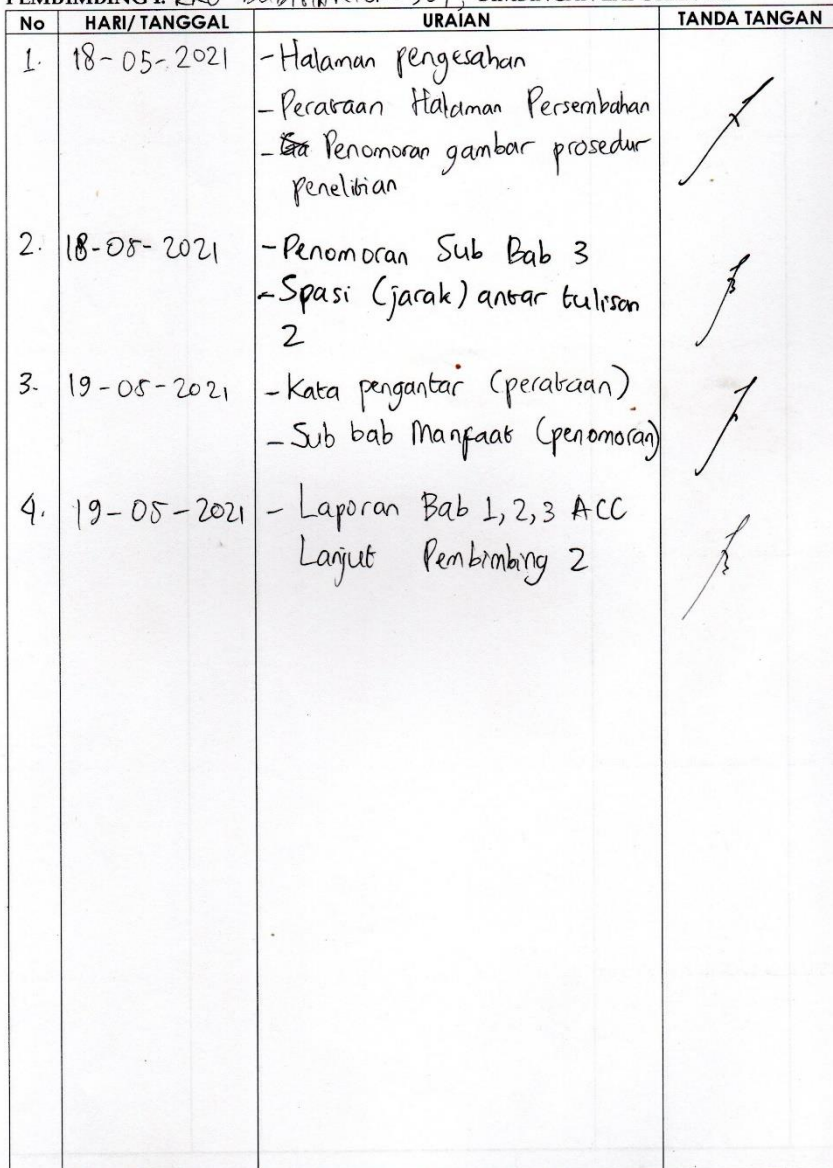 No HARI/ TANGGAL URAIAN TANDA TANGAN
1. 18-05-2021 - Halaman pengesahan
- Perataan Halaman Persembahan
- Penomoran gambar prosedur
penelitian
2. 18-05-2021 - Penomoran Sub Bab 3
- Spasi (jarak) antar tulisan
2
3. 19-05-2021 - Kata pengantar (perataan)
- Sub bab Manfaat (penomoran)
4. 19-05-2021 - Laporan Bab 1, 2, 3 ACC
Lanjut Pembimbing 2